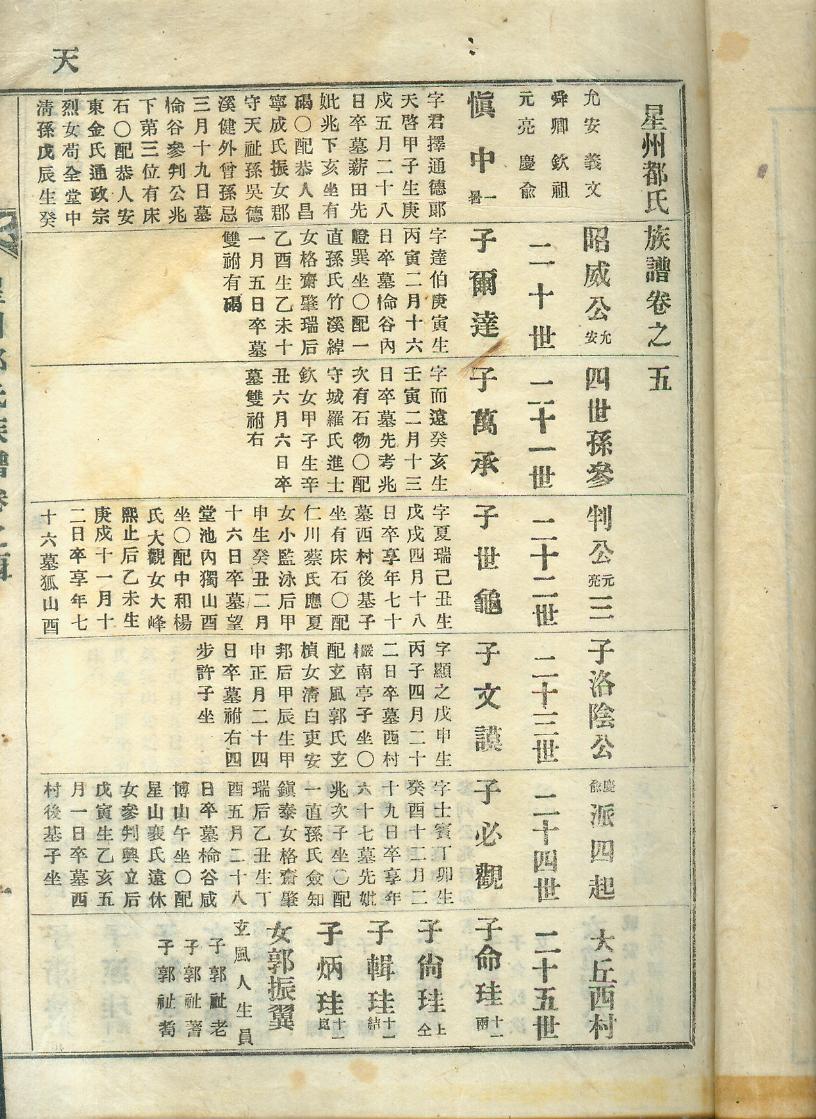 天
星州都氏族譜卷之五
允安義文
舜卿欽祖
元亮慶兪
昭威公允安四世孫參判公元亮三子洛陰公慶兪派四起大丘西村
二十世
二十一世
二十二世
二十三世
二十四世
二十五世
愼中一暑
字君擇通德郞
天啓甲子生庚
戌五月二十八
日卒墓薪田先
妣兆下亥坐有
碣〇配恭人昌
寧成氏振女郡
守天祉孫吳德
溪健外曾孫忌
三月十九日墓
惀谷參判公兆
下第三位有床
石〇配恭人安
東金氏通政宗
烈女荀全堂中
淸孫戊辰生癸
子爾達
字達伯庚寅生
丙寅二月十六
日卒墓惀谷內
嶝巽坐〇配一
直孫氏竹溪綽
女格齋肇瑞后
乙酉生乙未十
一月五日卒墓
雙祔有碣
子萬承
字而遠癸亥生
壬寅二月十三
日卒墓先考兆
次有石物〇配
守城羅氏進士
欽女甲子生辛
丑六月六日卒
墓雙祔右
子世龜
字夏瑞己丑生
戊戌四月十八
日卒享年七十
墓西村後基子
坐有床石〇配
仁川蔡氏應夏
女小監泳后甲
申生癸丑二月
十六日卒墓望
堂池內獨山酉
坐〇配中和楊
氏大觀女大峰
熙止后乙未生
庚戌十一月十
二日卒享年七
十六墓狐山酉
子文謨
字顯之戊申生
丙子四月二十
二日卒墓西村
嚴南亭子坐〇
配玄風郭氏玄
楨女淸白吏安
邦后甲辰生甲
申正月二十四
日卒墓祔右四
步許子坐
子必觀
字士賓丁卯生
癸酉十二月二
十九日卒享年
六十七墓先妣
兆次子坐〇配
一直孫氏僉知
鎭泰女格齋肇
瑞后乙丑生丁
酉五月二十八
日卒墓惀谷咸
博山午坐〇配
星山裵氏遠休
女參判興立后
戊寅生乙亥五
月一日卒墓西
村後基子坐
子命珪十一兩
子尙珪上仝
子輯珪十一結
子炳珪十一崑
女郭振翼
玄風人生員
子郭祉老
子郭祉著
子郭祉喬
星州都氏族譜卷之